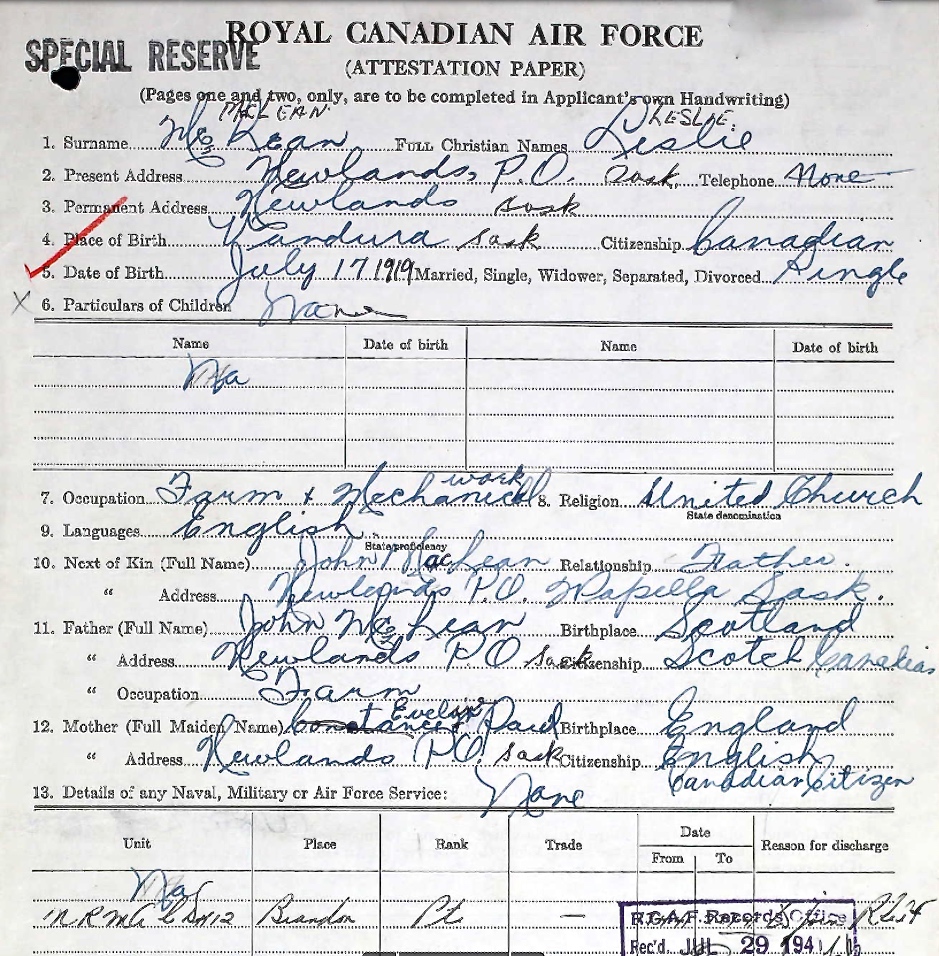 ROYAL CANADIAN AIR FORCE
SPECIAL RESERVE
(ATTESTATION PAPER)
(Pages one and two, only, are to be completed in Applicant's own Handwriting)
MCLEAN. LESLIE.
1. Surname Mc Lean Full Christian Names Leslie
2. Present Address Newlands, P.O. Sask. Telephone None
3. Permanent Address Newlands Sask
4. Place of Birth Vandura Sask Citizenship Canadian
5. Date of Birth July 17 1919 Married, Single, Widower, Separated, Divorced Single
X 6. Particulars of Children None
Name Date of birth Name Date of birth
Na
work
7. Occupation Farm & Mechanical 8. Religion United Church
State denomination
9. Languages English
State proficiency
10. Next of Kin (Full Name) John MacLean Relationship Father.
" Address Newlands P.O. Wapella Sask.
11. Father (Full Name) John Mc Lean Birthplace Scotland
" Address Newlands P O Sask Citizenship Scotch Canadian
" Occupation Farm
Evelyn
12. Mother (Full Maiden Name) Constance Paul Birthplace England
" Address Newlands P.O. Sask Citizenship English
Canadian Citizen
13. Details of any Naval, Military or Air Force Service: None
Unit Place Rank Trade Date Reason for discharge
From To
Na
N R M A Brandon Pte —
R.C.A.F. Records Office
Rec'd JUL 29 194